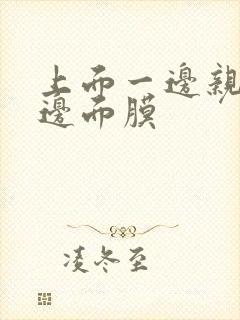 上而一邊親
邊而膜
凌冬至